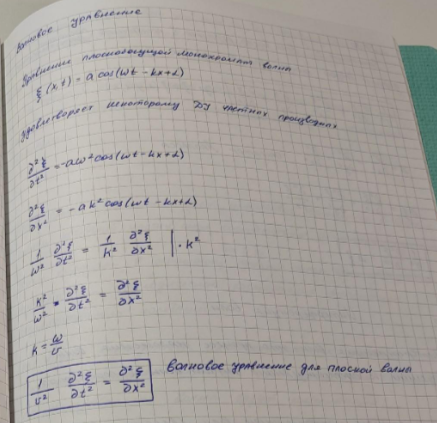 Волновое уравнение
Уравнение плоскобегущей монохромат волны
ξ(x,t) = a cos(ωt - kx + α)
удовлетворяет некоторому ДУ частных производных
∂²ξ/∂t² = -aω² cos(ωt - kx + α)
∂²ξ/∂x² = -ak² cos(ωt - kx + α)
1/ω² ∂²ξ/∂t² = 1/k² ∂²ξ/∂x² | · k²
k²/ω² · ∂²ξ/∂t² = ∂²ξ/∂x²
k = ω/v
1/v² ∂²ξ/∂t² = ∂²ξ/∂x² Волновое уравнение для плоской волны